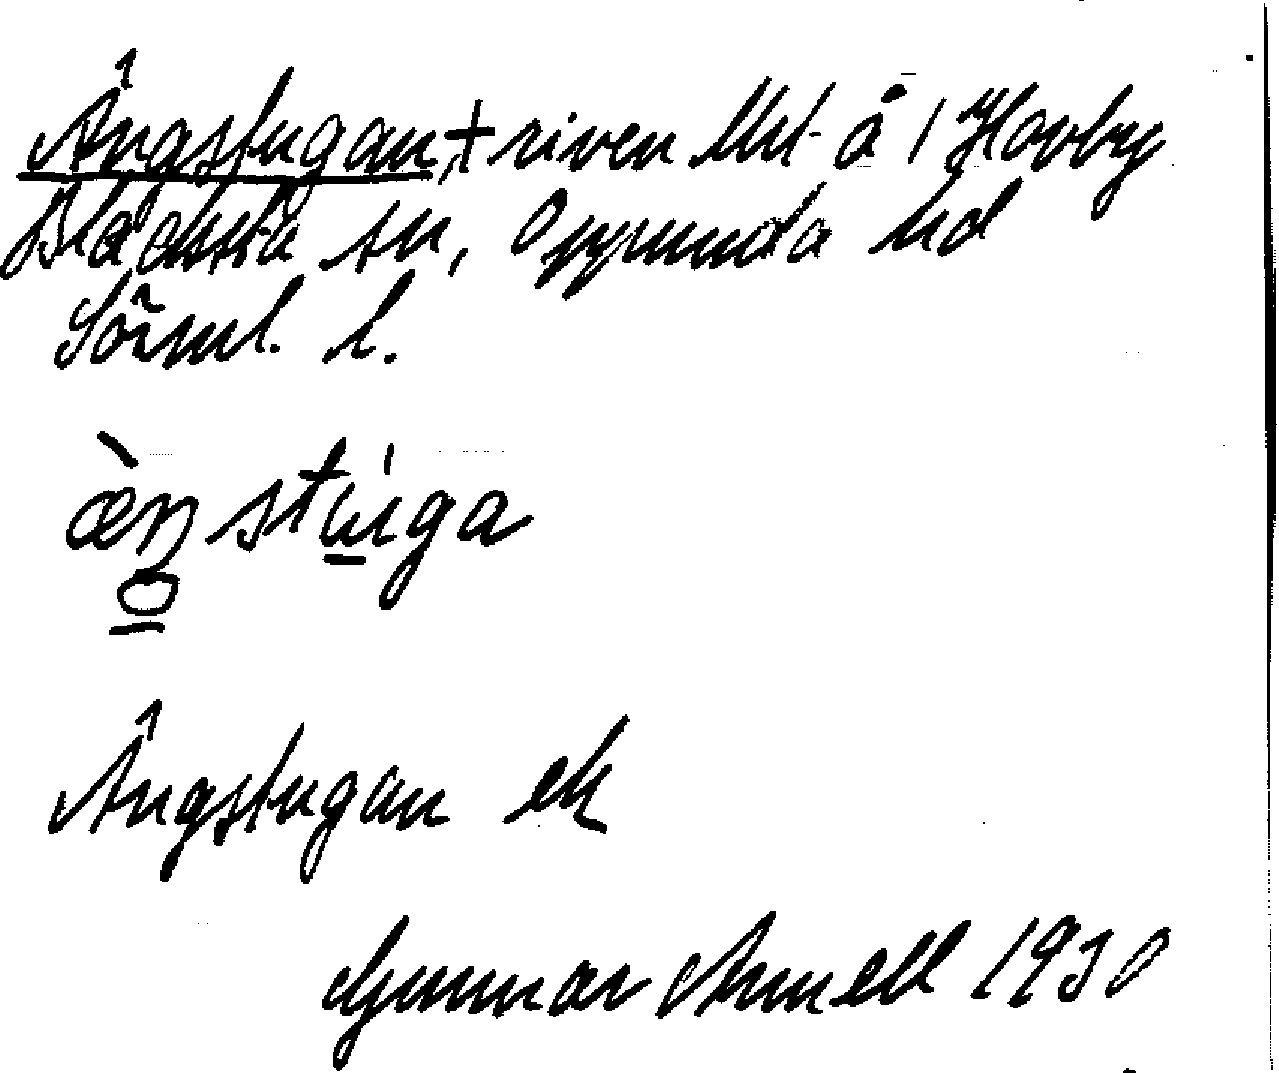 Ängstugan, + riven lht å 1 Hovby
Blacksta sn, Oppunda hd
Sörml. l.
æ̀ŋstúga
Ängstugan ek
Gunnar Arnell 1930